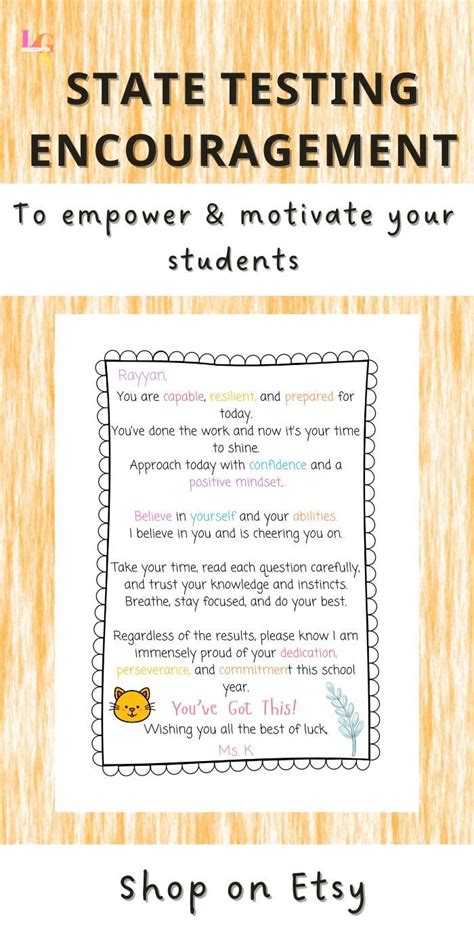 LG
STATE TESTING
ENCOURAGEMENT
To empower & motivate your
students
Rayyan,
You are capable, resilient, and prepared for
today.
You've done the work and now it's your time
to shine.
Approach today with confidence and a
positive mindset.
Believe in yourself and your abilities.
I believe in you and is cheering you on.
Take your time, read each question carefully,
and trust your knowledge and instincts.
Breathe, stay focused, and do your best.
Regardless of the results, please know I am
immensely proud of your dedication,
perseverance, and commitment this school
year.
You've Got This!
Wishing you all the best of luck,
Ms. K
Shop on Etsy